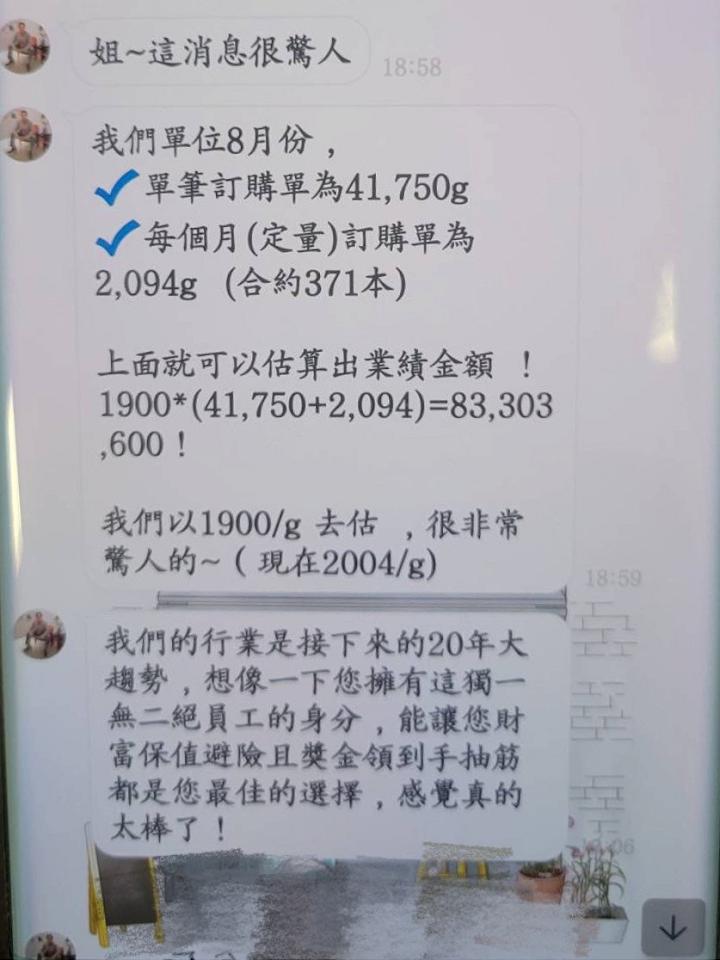 姐~這消息很驚人
18:58
我們單位8月份，
單筆訂購單為41,750g
每個月(定量)訂購單為
2,094g (合約371本)
上面就可以估算出業績金額 ！
1900*(41,750+2,094)=83,303
,600！
我們以1900/g 去估 ，很非常
驚人的~ ( 現在2004/g)
18:59
我們的行業是接下來的20年大
趨勢，想像一下您擁有這獨一
無二絕員工的身分，能讓您財
富保值避險且獎金領到手抽筋
都是您最佳的選擇，感覺真的
太棒了！